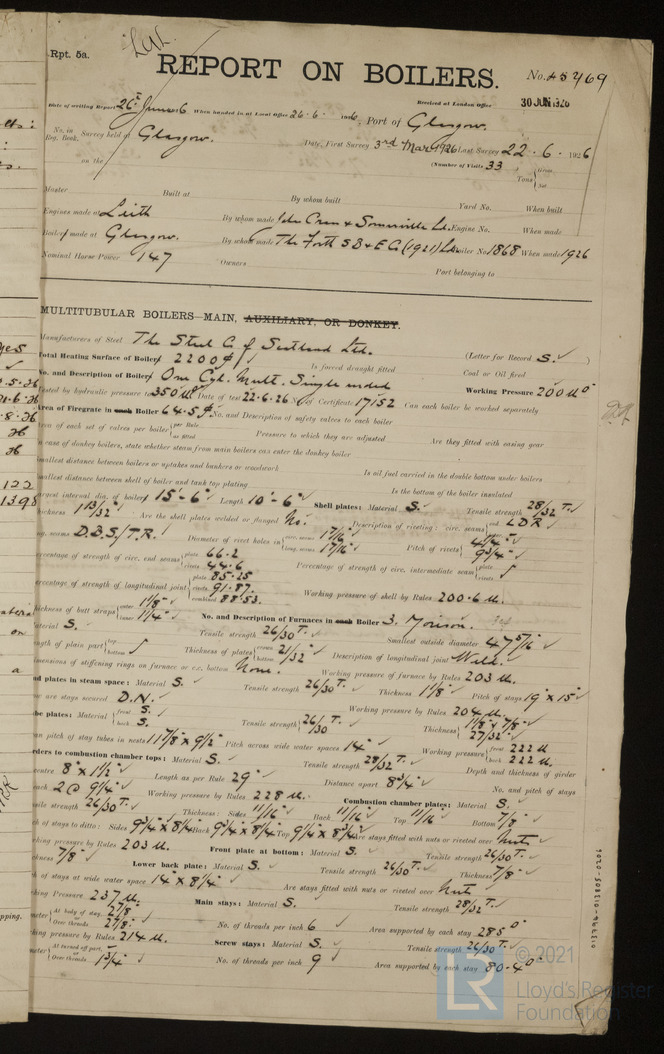 Rpt. 5a.
REPORT ON BOILERS.
No. 45469
Received at London Office 30 JUN 1926
Date of writing Report 26th June 1926 When handed in at Local Office 26.6.1926 Port of Glasgow.
No. in Reg. Book. Survey held at Glasgow. Date, First Survey 3rd Mar 1926 Last Survey 22.6.1926
on the (Number of Visits 33) Tons { Gross Net
Master Built at By whom built Yard No. When built
Engines made at Leith By whom made Engine No. When made
Boilers made at Glasgow. By whom made The Forth S B & E Co (1921) Ld. Boiler No 1868 When made 1926
Nominal Horse Power 147 Owners Port belonging to
MULTITUBULAR BOILERS MAIN, AUXILIARY, OR DONKEY.
Manufacturers of Steel The Steel Co. of Scotland Ltd.
Total Heating Surface of Boilers 2200 Is forced draught fitted Coal or Oil fired (Letter for Record S. )
No. and Description of Boilers One Cyl. Mult. Single ended Working Pressure 200
Tested by hydraulic pressure to 350 Date of test 22.6.26 No. of Certificate 17152 Can each boiler be worked separately
Area of Firegrate in each Boiler 64.5 No. and Description of safety valves to each boiler
Area of each set of valves per boiler { per Rule as fitted Pressure to which they are adjusted Are they fitted with easing gear
In case of donkey boilers, state whether steam from main boilers can enter the donkey boiler
Smallest distance between boilers or uptakes and bunkers or woodwork Is oil fuel carried in the double bottom under boilers
Smallest distance between shell of boiler and tank top plating Is the bottom of the boiler insulated
Largest internal dia. of boilers 15'-6" Length 10'-6" Shell plates: Material S. Tensile strength 28/32 T.
Thickness 1 13/32" Are the shell plates welded or flanged No. Description of riveting: circ. seams { end L D R
long. seams D.B.S/T.R. Diameter of rivet holes in { circ. seams 17/16" long. seams 17/16" Pitch of rivets { 9 3/4"
Percentage of strength of circ. end seams { plate 66.2 rivets 44.6 Percentage of strength of circ. intermediate seam { plate rivets
Percentage of strength of longitudinal joint { plate 85.25 rivets 91.87 combined 88.53. Working pressure of shell by Rules 200.6
Thickness of butt straps { outer 1 1/8" inner 1 1/4" No. and Description of Furnaces in each Boiler 3. Morison.
Material S. Tensile strength 26/30 T. Smallest outside diameter 47 5/16"
Length of plain part { top bottom Thickness of plates { crown bottom 21/32" Description of longitudinal joint Weld.
Dimensions of stiffening rings on furnace or c.c. bottom None. Working pressure of furnace by Rules 203
End plates in steam space: Material S. Tensile strength 26/30 T. Thickness 1 1/8" Pitch of stays 19" x 15"
How are stays secured D.N. Working pressure by Rules 204
Tube plates: Material { front S. back S. Tensile strength { 26/30 T. Thickness { 27/32"
Mean pitch of stay tubes in nests 11 7/8" x 9 1/2" Pitch across wide water spaces 14" Working pressure { front 222 back 222
Girders to combustion chamber tops: Material S. Tensile strength 28/32 T. Depth and thickness of girder
at centre 8" x 1 1/2" Length as per Rule 29" Distance apart 8 3/4" No. and pitch of stays
in each 2 @ 9 1/4" Working pressure by Rules 228 Combustion chamber plates: Material S.
Tensile strength 26/30 T. Thickness: Sides 11/16" Back 11/16" Top 11/16" Bottom 7/8"
Pitch of stays to ditto: Sides 9 3/4" x 8 1/4" Back 9 3/4" x 8 1/4" Top 9 1/4" x 8 3/4" Are stays fitted with nuts or riveted over Nuts
Working pressure by Rules 203 Front plate at bottom: Material S. Tensile strength 26/30 T.
Thickness 7/8" Lower back plate: Material S. Tensile strength 26/30 T. Thickness 7/8"
Pitch of stays at wide water space 14" x 8 1/4" Are stays fitted with nuts or riveted over Nuts
Working Pressure 237 Main stays: Material S. Tensile strength 28/32 T.
Diameter { At body of stay, or Over threads 2 7/8" No. of threads per inch 6 Area supported by each stay 285
Working pressure by Rules 214 Screw stays: Material S. Tensile strength 26/30 T.
Diameter { At turned off part, or Over threads 1 3/4" No. of threads per inch 9 Area supported by each stay 80.4
© 2021
Lloyd's Register
Foundation
LR